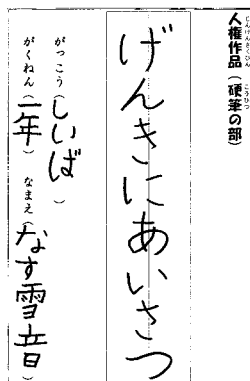 人権作品(硬筆の部)
げんきにあいさつ
がっこう(しいば)
がくねん(二年) なまえ(なす雪音)